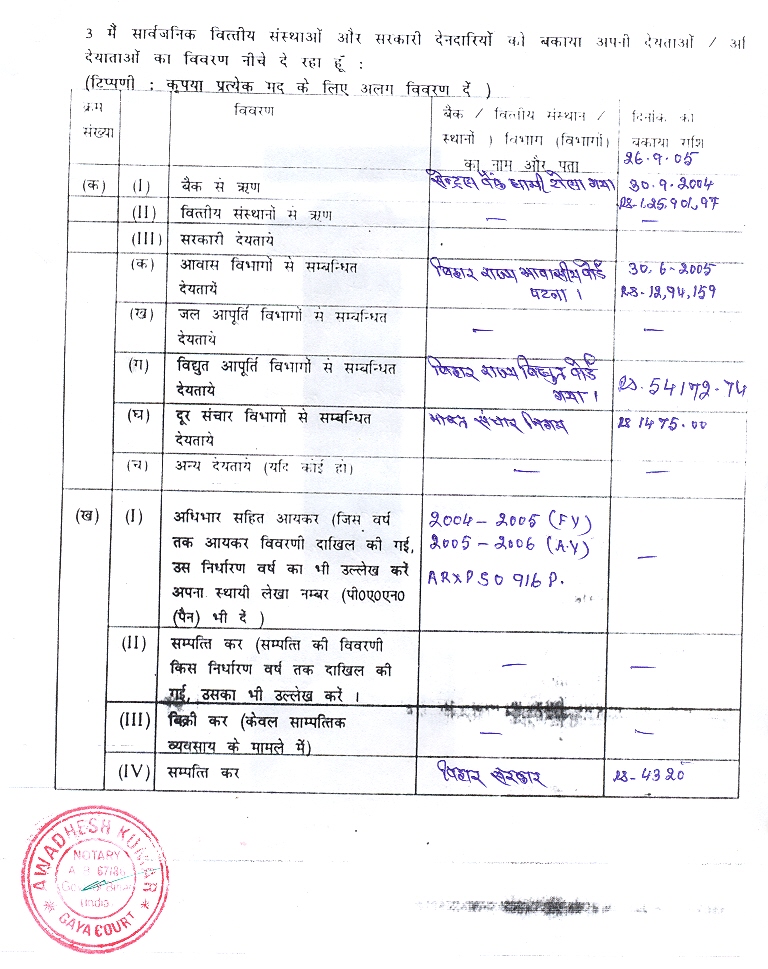 3 मैं सार्वजनिक वित्तीय संस्थाओं और सरकारी देनदारियों को बकाया अपनी देयताओं / अि
देयाताओं का विवरण नीचे दे रहा हूँ :
(टिप्पणी : कृपया प्रत्येक मद के लिए अलग विवरण दें )
क्रम संख्या विवरण बैंक / वित्तीय संस्थान / दिनांक का
स्थानों ) विभाग (विभागों) बकाया राशि
का नाम और पता 26.9.05
(क) (I) बैंक से ऋण सेन्ट्रल बैंक गया 30.9.2004
(II) वित्तीय संस्थानों से ऋण — —
(III) सरकारी देयताये
(क) आवास विभागों से सम्बन्धित बिहार राज्य आवासीय बोर्ड 30.6-2005
देयतायें पटना । RS-12,94,159
(ख) जल आपूर्ति विभागों से सम्बन्धित — —
देयताये
(ग) विद्युत आपूर्ति विभागों से सम्बन्धित बिहार राज्य विद्युत बोर्ड RS. 54172.74
देयताये गया ।
(घ) दूर संचार विभागों से सम्बन्धित भारत संचार निगम RS 1475.00
देयताये
(च) अन्य देयताये (यदि कोई हो) — —
(ख) (I) अधिभार सहित आयकर (जिस वर्ष 2004 – 2005 (F Y)
तक आयकर विवरणी दाखिल की गई, 2005 – 2006 (A.Y) —
उस निर्धारण वर्ष का भी उल्लेख करें
अपना स्थायी लेखा नम्बर (पी0ए0एन0
(पैन) भी दें )
(II) सम्पत्ति कर (सम्पत्ति की विवरणी
किस निर्धारण वर्ष तक दाखिल की — —
गई, उसका भी उल्लेख करें ।
(III) बिक्री कर (केवल साम्पत्तिक
व्यवसाय के मामले में) — —
(IV) सम्पत्ति कर बिहार सरकार RS-4320
AWADHESH KUMAR
NOTARY
India
GAYA COURT